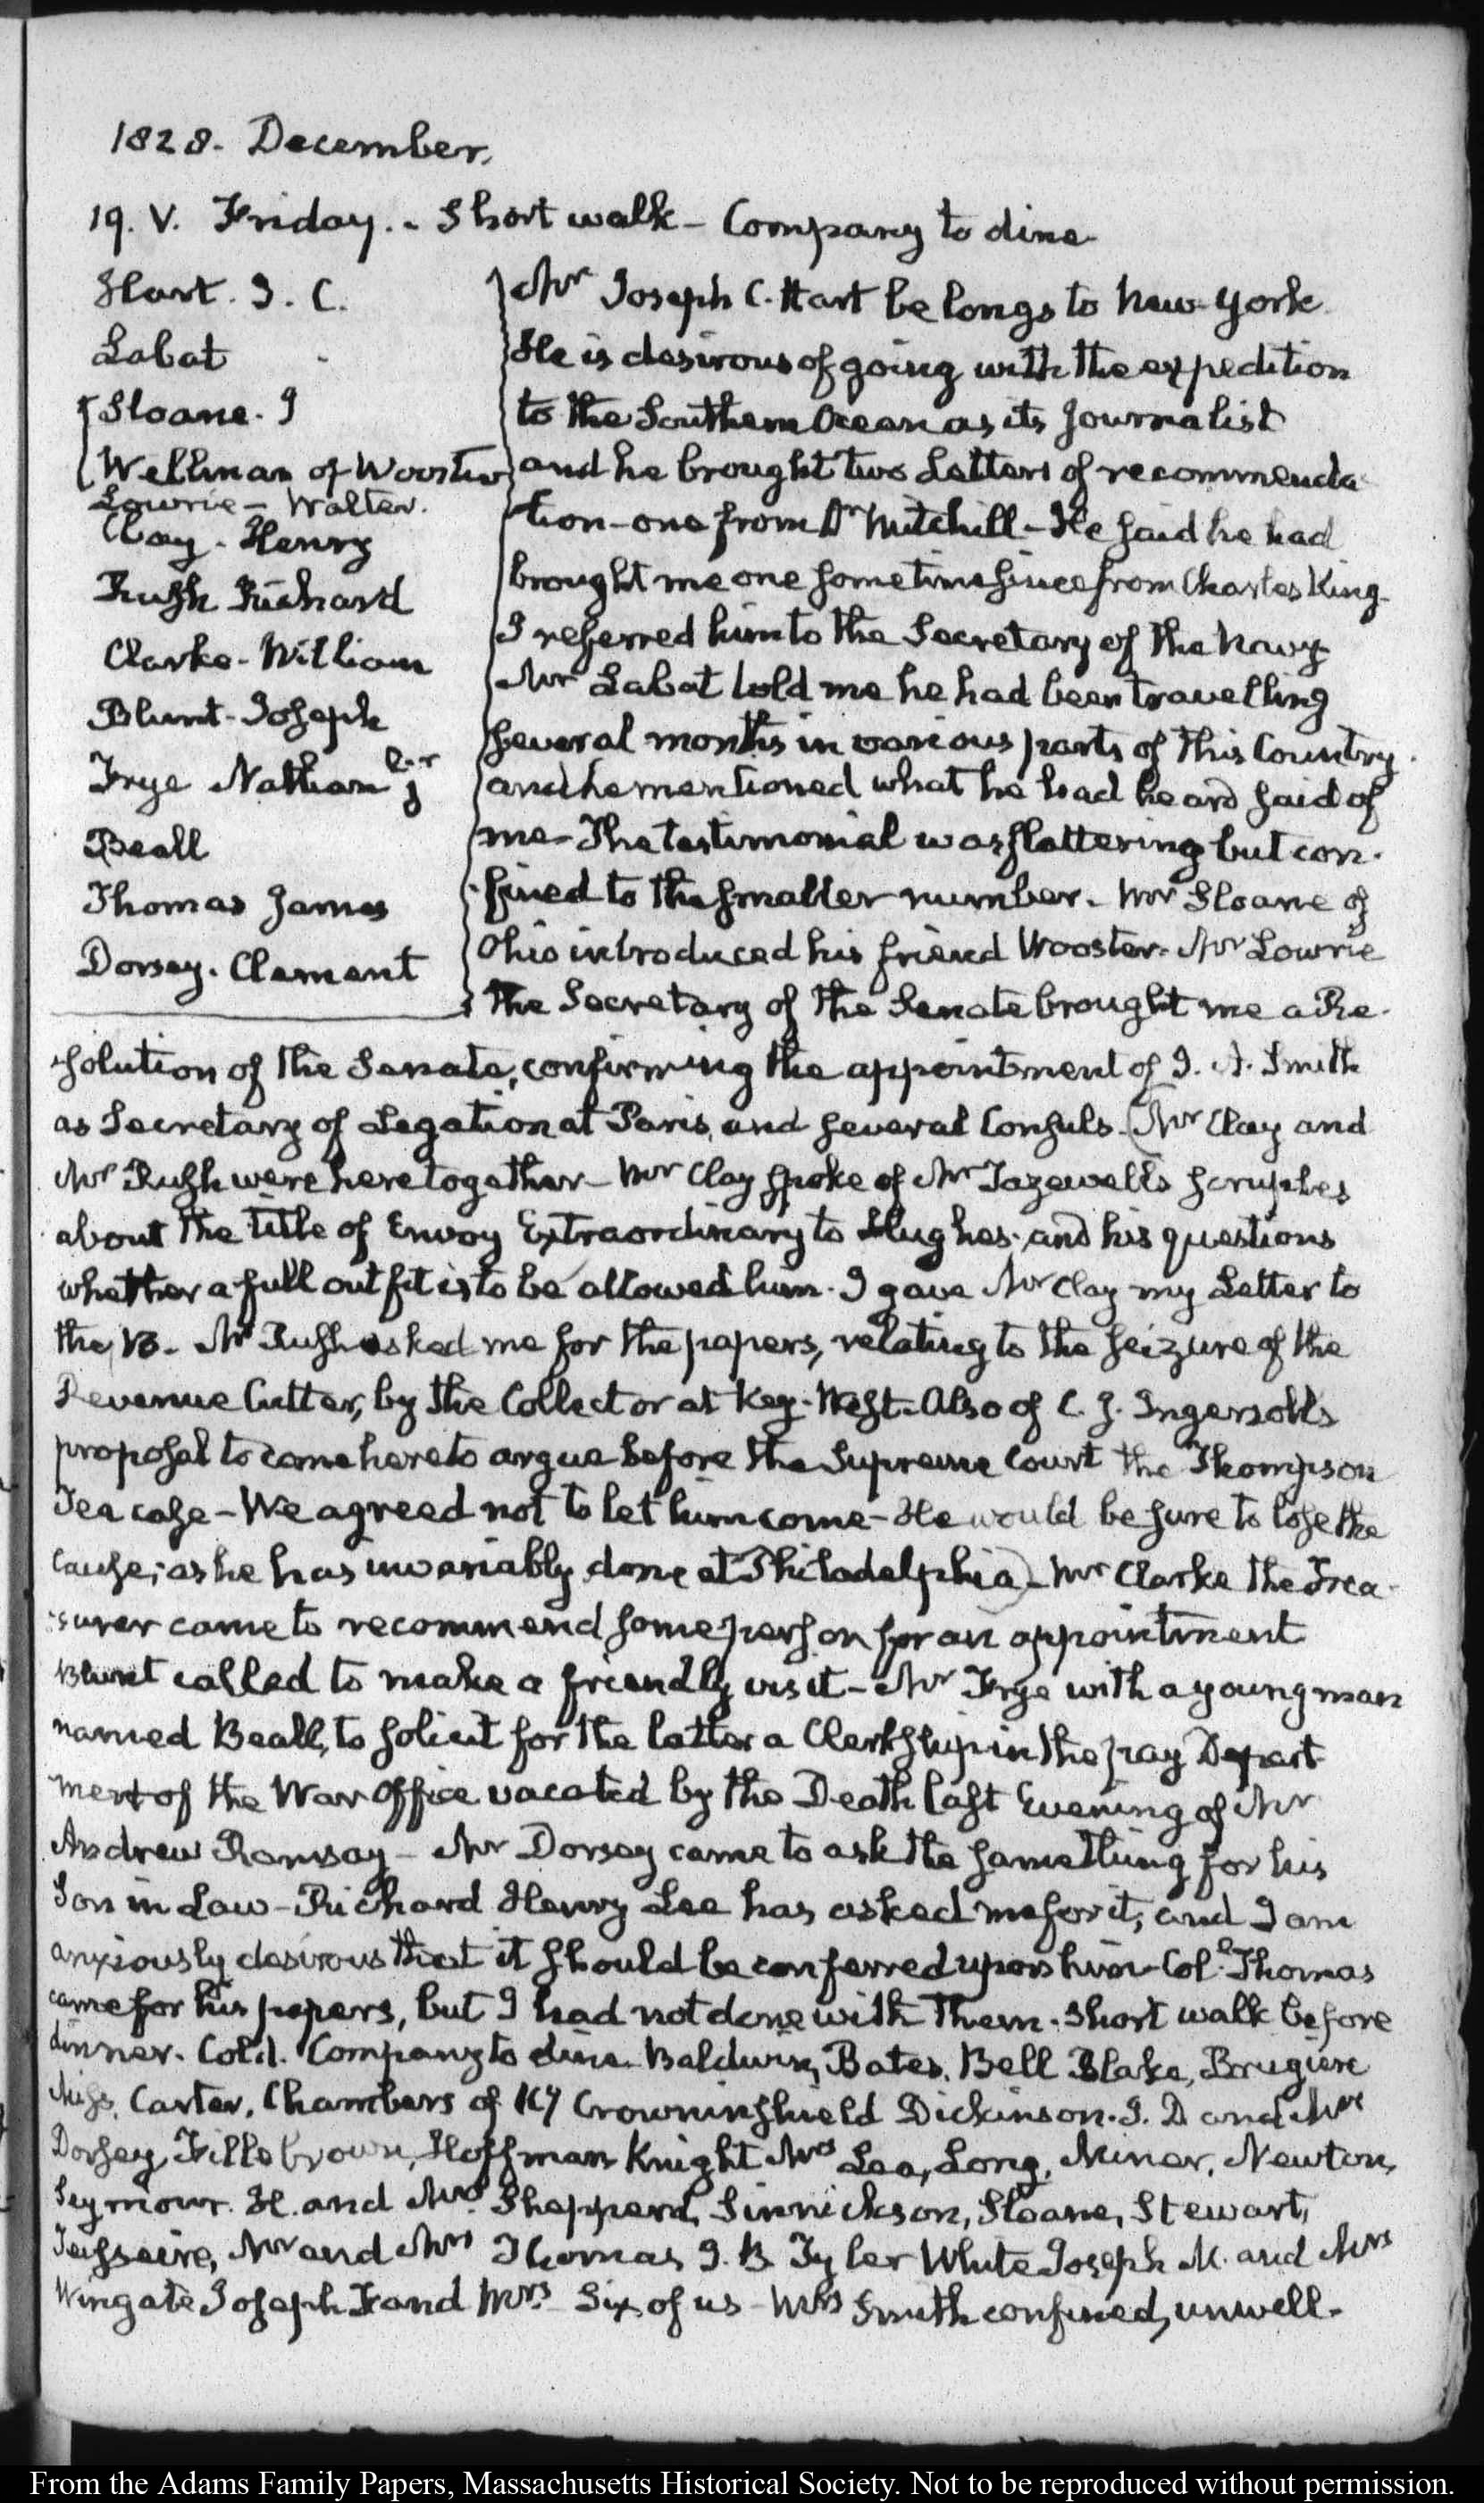 1828. December.
19. V. Friday. - Short walk - Company to dine
Hart. J. C.
Labat
Sloane. J
Wellman of Wooster
Lowrie - Walter.
Clay - Henry
Rush Richard
Clarke - William
Blunt - Joseph
Frye Nathan.l jr
Beall
Thomas James
Dorsey. Clement
Mr Joseph C. Hart belongs to New-York
He is desirous of going with the expedition
to the Southern Ocean as its Journalist
and he brought two Letters of recommenda
tion - one from Dr Mitchill - He said he had
brought me one sometime since from Charles King -
I referred him to the Secretary of the Navy
Mr Labat told me he had been travelling
several months in various parts of this Country.
and he mentioned what he had heard said of
me - The testimonial was flattering but con-
-fined to the smaller number. Mr Sloane of
Ohio introduced his friend Wooster. Mr Lowrie
the Secretary of the Senate brought me a Re-
-solution of the Senate, confirming the appointment of J. A. Smith
as Secretary of Legation at Paris, and several Consuls. (Mr Clay and
Mr Rush were here together - Mr Clay spoke of Mr Tazewell's scruples
about the title of Envoy Extraordinary to Hughes. and his questions
whether a full outfit is to be allowed him. I gave Mr Clay my Letter to
the 13. Mr Rush asked me for the papers, relating to the seizure of the
Revenue Cutter, by the Collector at Key-West. Also of C. J. Ingersoll's
proposal to come here to argue before the Supreme Court the Thompson
Tea case - We agreed not to let him come - He would be sure to lose the
cause; as he has invariably done at Philadelphia) - Mr Clarke the Trea-
-surer came to recommend some person for an appointment
Blunt called to make a friendly visit - Mr Frye with a young man
named Beall, to solicit for the latter a Clerkship in the pay Depart
ment of the War Office vacated by the Death last Evening of Mr
Andrew Ramsay - Mr Dorsey came to ask the same thing for his
Son in Law - Richard Henry Lee has asked me for it, and I am
anxiously desirous that it should be conferred upon him - Col.l Thomas
came for his papers, but I had not done with them. Short walk before
dinner. Cold. Company to dine. Baldwin, Bates, Bell Blake, Brugiere
Miss. Carter, Chambers of Ky Crowninshield Dickinson. J. D and Mrs
Dorsey, Fillebrown, Hoffman Knight Mrs Lea, Long, Miner, Newton,
Seymour. H. and Mrs Shepperd, Sinnickson, Sloane, Stewart,
Teissaire, Mr and Mrs Thomas J. B Tyler White Joseph M. and Mrs
Wingate Joseph F and Mrs - Six of us - Mrs Smith confined, unwell.
From the Adams Family Papers, Massachusetts Historical Society. Not to be reproduced without permission.